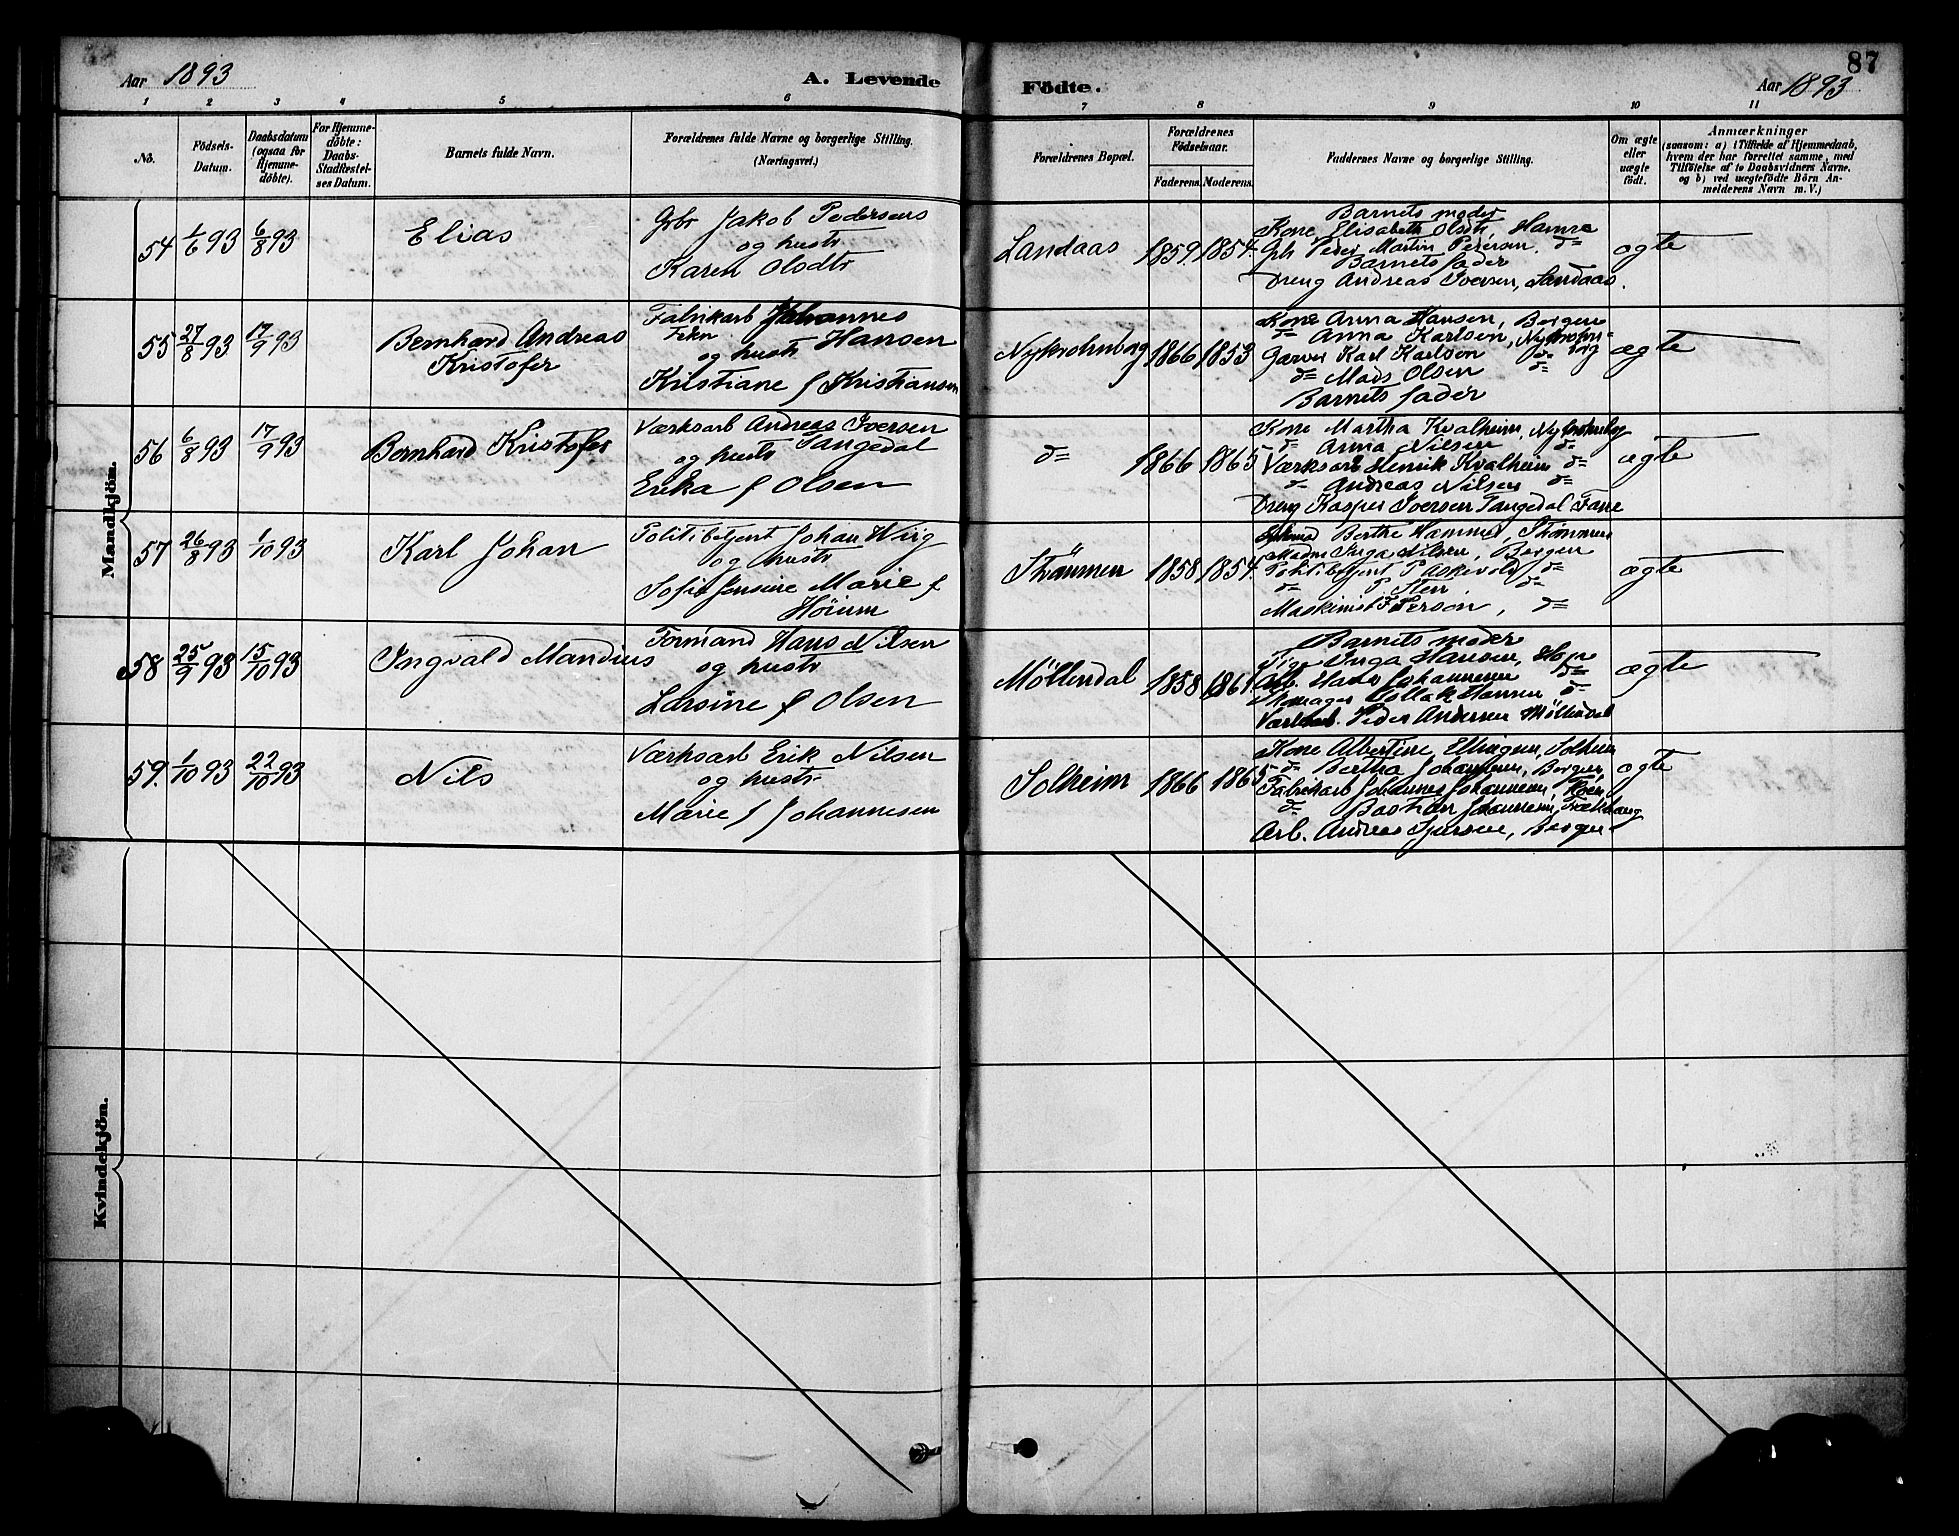 87
Aar 1893
A. Levende
Födte.
Aar 1893
1 2 3 4 5 6 7 8 9 10 11
No.
Födsels-
Datum.
Daabsdatum
(ogsaa for
Hjemme-
döbte).
For Hjemme-
döbte:
Daabs-
Stadfæstel-
ses Datum.
Barnets fulde Navn.
Forældrenes fulde Navne og borgerlige Stilling.
(Næringsvei.)
Forældrenes Bopæl.
Forældrenes
Födselsaar.
Faderens. Moderens.
Faddernes Navne og borgerlige Stilling.
Om ægte
eller
uægte
født.
Anmærkninger
(saasom: a) i Tilfælde af Hjemmedaab,
hvem der har forrettet samme, med
Tilföielse af to Daabsvidners Navne,
og b) ved uægtefödte Börn An-
melderens Navn m. V.)
Mandkjön.
54 1/6 93 6/8 93
Elias
Gbr Jakob Pedersens
og hustr
Karen Olsdtr
Landaas 1859. 1854.
Barnets moder
Kone Elisabeth Olsdtr, Hamre
Gbr Peder Martin Pedersen. d=
Barnets fader
Dreng Andreas Iversen, Landaas.
ægte
55 27/8 93 17/9 93
Bernhard Andreas
Kristofer
Fabrikarb Johannes
Hansen
og hustr
Kristiane f Kristiansen
Nykrohnborg 1866 1853
Kone Anna Hansen, Bergen
d= Anna Karlsen, Nykrohn-
borg
Garver Karl Karlson d=
d= Mads Olsen d=
Barnets fader
ægte
56 6/8 93 17/9 93
Bernhard Kristofer
Værksarb Andreas Iversen
Tangedal
og hustr
Erika f Olsen
d= 1866 1865
Kone Martha Kvalheim, Nykrohnborg
d= Anna Nilsen d=
Værksarb Henrik Kvalheim d=
d= Andreas Nilsen d=
Dreng Kasper Iversen Tangedal Fane
ægte
57 26/8 93 1/10 93
Karl Johan
Politibetjent Johan Wiig
og hustr
Sofie Jensine Marie f
Høium
Strömmen 1858 1854.
Berthe Hammer, Strömmen
Madm Inga Nilsen, Bergen
Politibetjent P Askevold d=
d= P Sten d=
Maskinist Iverson, d=
ægte
58 25/9 93 15/10 93
Ingvald Mandius
Formand Hans Nilsen
og hustr
Larsine f Olsen
Møllendal 1858 1861
Barnets moder
Pige Inga Hansen,
Arb. Hans Johannesen d=
Hansen d=
Værksarb. Peder Andersen Møllendal
ægte
59. 1/10 93 22/10 93
Nils
Værksarb Erik Nilsen
og hustr
Marie f Johannesen
Solheim 1866 1865
Kone Albertine Ellingsen, Solheim
d= Bertha Johannesen, Bergen,
Fabrikarb Johannes Johannesen,
d= Bastian Johannesen,
Arb. Andreas Sjursen, Bergen
ægte
Kvindekjön.